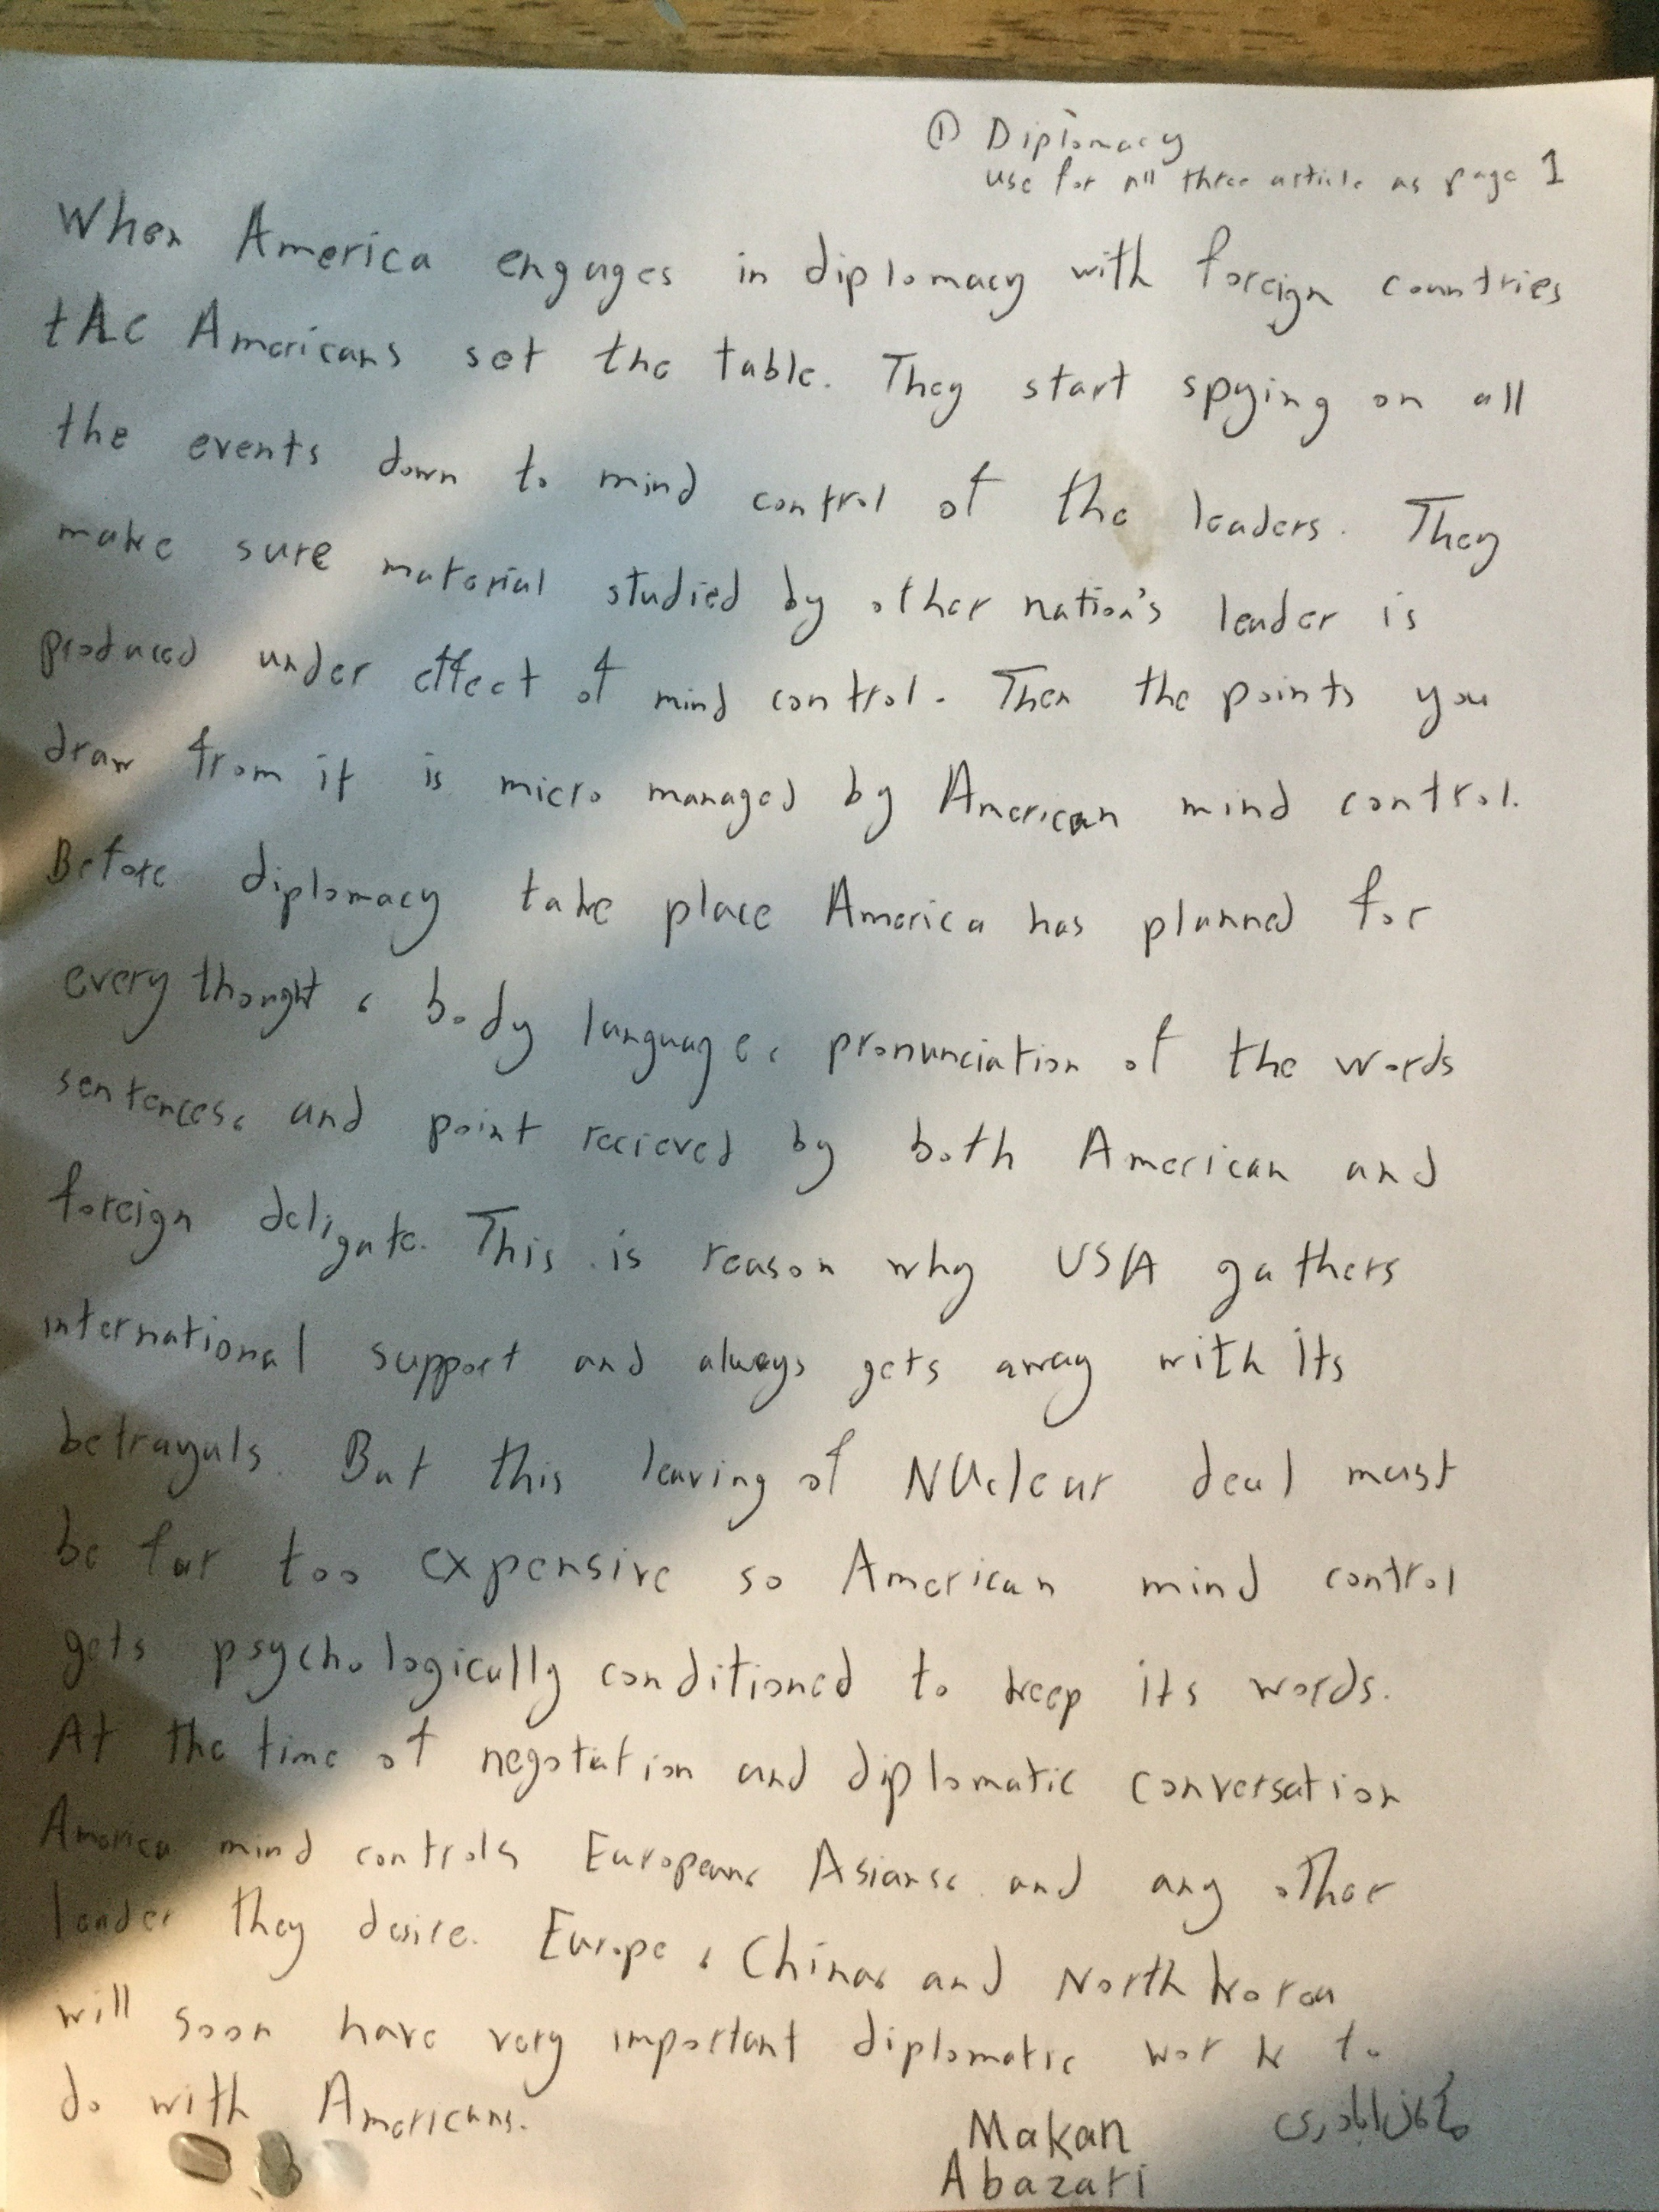 ① Diplomacy
use for all three article as page 1
When America engages in diplomacy with foreign countries
the Americans set the table. They start spying on all
the events down to mind control of the leaders. They
make sure material studied by other nation's leader is
produced under effect of mind control. Then the points you
draw from it is micro managed by American mind control.
Before diplomacy take place America has planned for
every thought، body language، pronunciation of the words
sentences، and point recieved by both American and
foreign deligate. This is reason why USA gathers
international support and always gets away with its
betrayals. But this leaving of NUclear deal must
be far too expensive so American mind control
gets psychologically conditioned to keep its words.
At the time of negotiation and diplomatic conversation
America mind controls Europeans، Asians، and any other
leader they desire. Europe، China، and North Korea
will soon have very important diplomatic work to
do with Americans.
Makan
Abazari
مکان اباذری